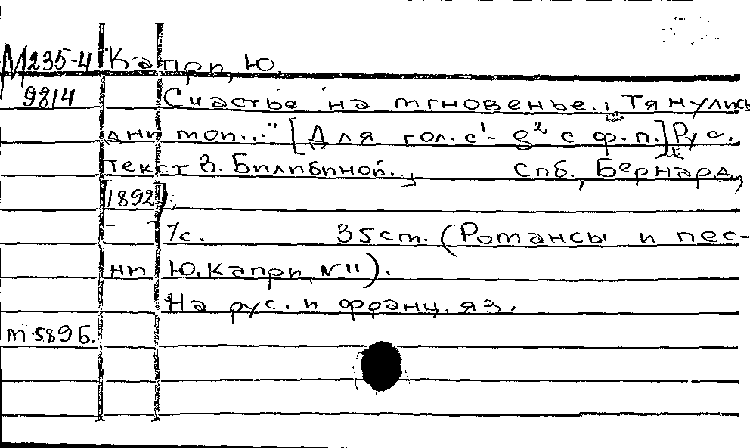 М235-4 Капри, Ю.
9814 Счастье на мгновенье. „Тянулись
дни мои..." [Для гол. c¹-g² с ф.п.] Рус.
текст З. Билибиной. Спб., Бернард,
[1892].
7с. 35см. (Романсы и пес-
ни Ю. Капри, № 11).
На рус. и франц. яз.
м 589 б.